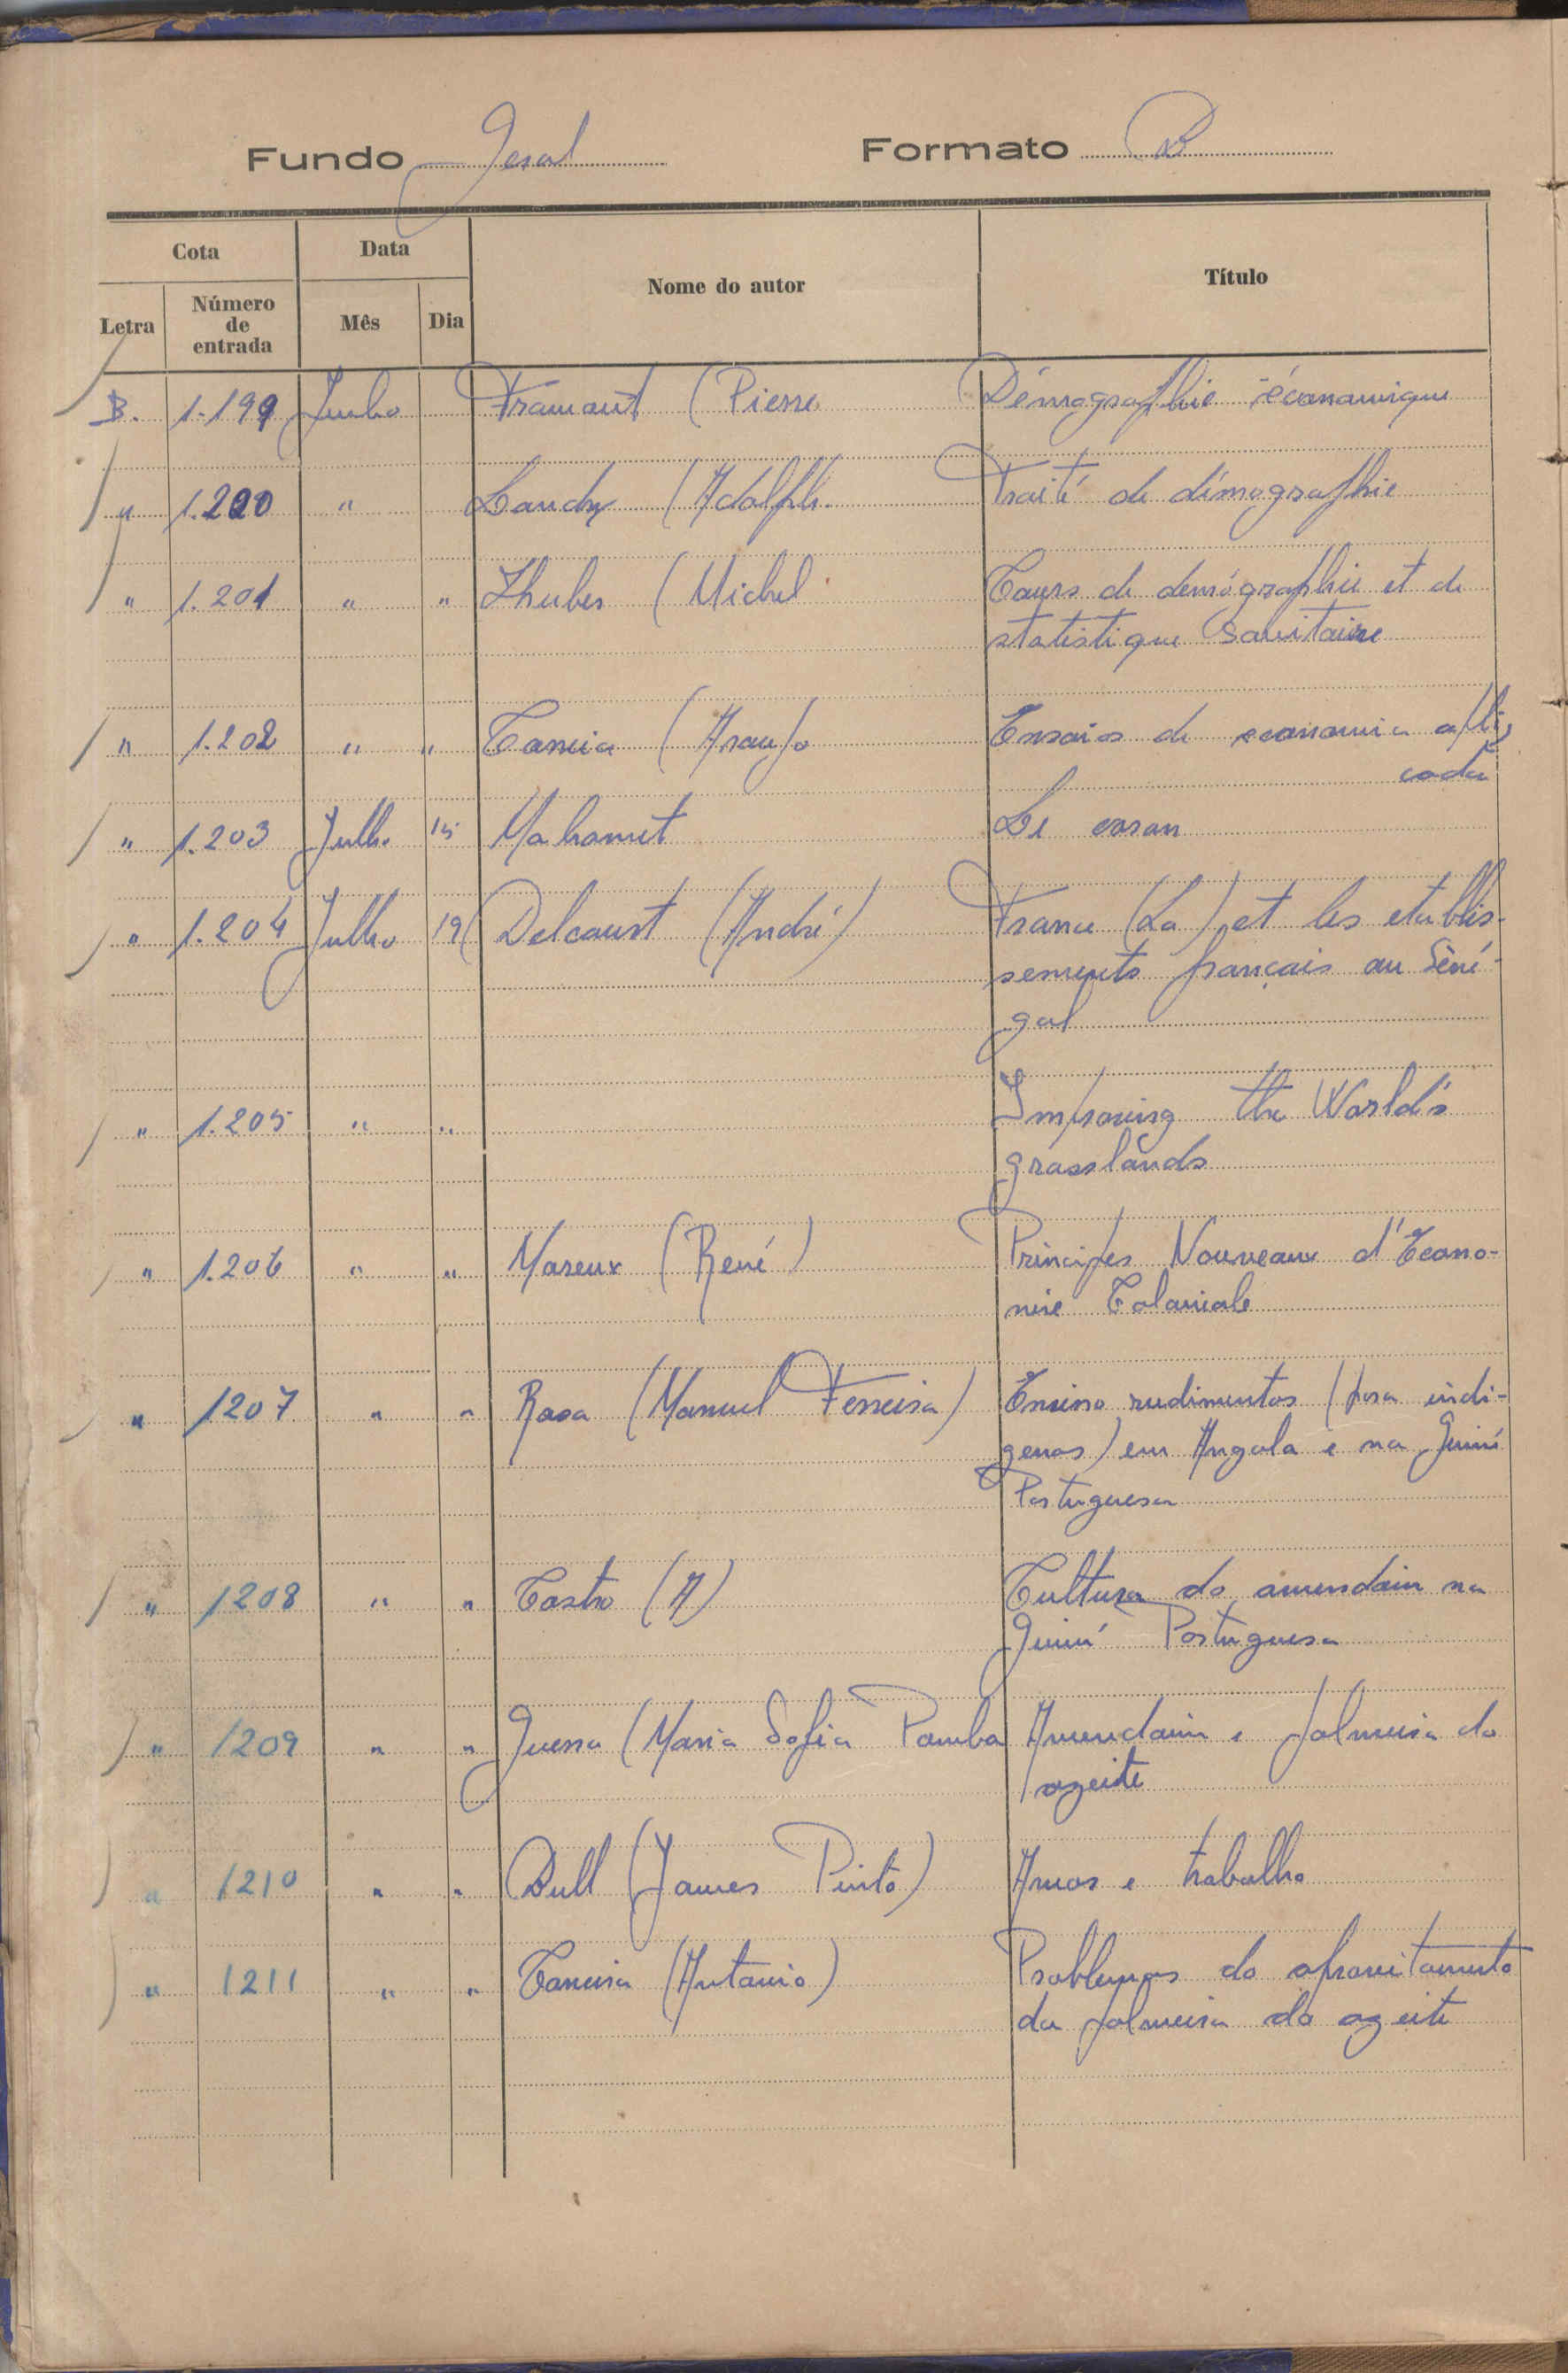 Fundo Geral Formato B
Cota Data Nome do autor Título
Letra Número de entrada Mês Dia
B. 1.199 Junho Fromont (Pierre Démographie économique
" 1.200 " Landry (Adolph. Traité de démographie
" 1.201 " " Huber (Michel Cours de demógraphie et de
statistique Sanitaire
" 1.202 " " Correia (Araujo Ensaios de economia apli-
cada
" 1.203 Julho 15 Mahomet Le coran
" 1.204 Julho 19 Delcourt (André) France (La) et les etablis-
sements français au Séné-
gal
" 1.205 " " Improving the World's
grasslands
" 1.206 " " Mareux (René) Principes Nouveaux d'Econo-
mie Coloniale
" 1207 " " Rosa (Manuel Ferreira) Ensino rudimentos (para indi-
genas) em Angola e na Guiné
Portuguesa
" 1208 " " Castro (A) Cultura do amendoim na
Guiné Portuguesa
" 1209 " " Guerra (Maria Sofia Pomba Amendoim e palmeira do
azeite
" 1210 " " Bull (James Pinto) Amor e trabalho
" 1211 " " Carreira (Antonio) Problemas do aproveitamento
da palmeira do azeite